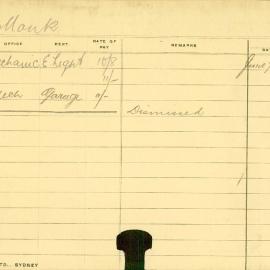 Monk
OFFICE DEPT. RATE OF PAY REMARKS DA
chanic E Light 10/8 June
11/-
ech Garage
Dismissed
TD., SYDNEY